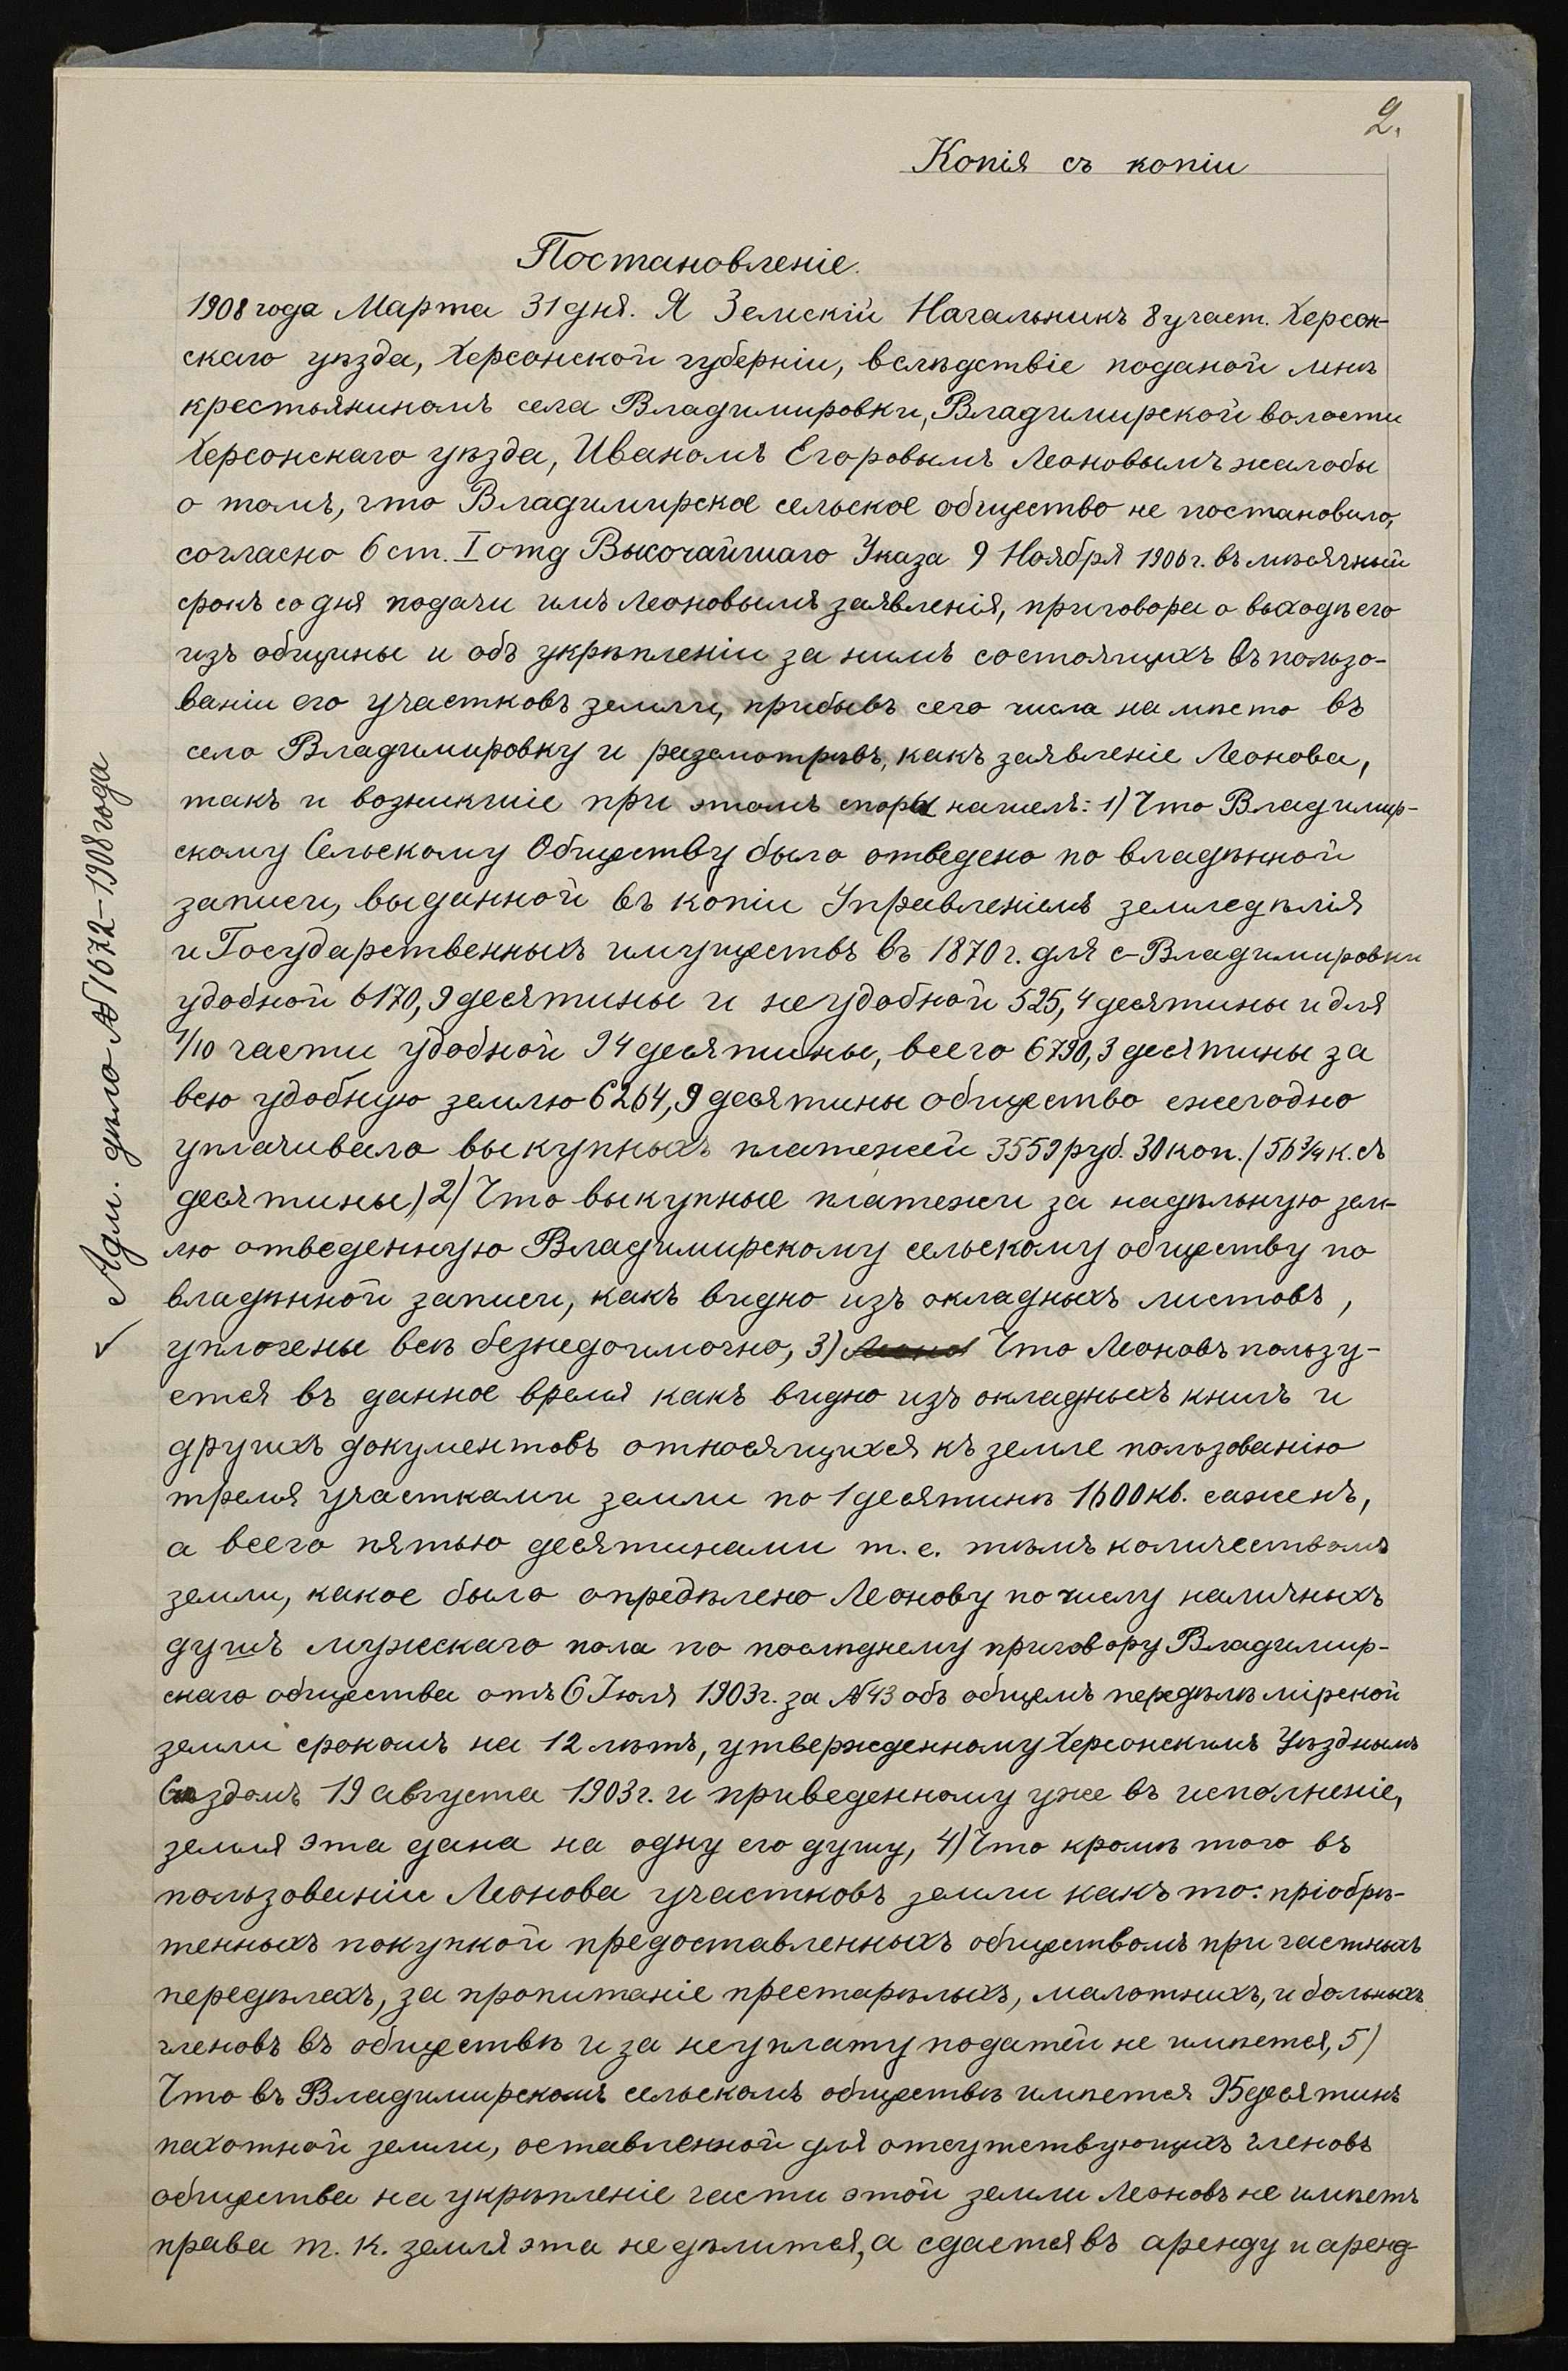 2.
Копія съ копіи
Постановленіе.
1908 года Марта 31 дня. Я Земскій Начальникъ 8 участ. Херсон-
скаго уѣзда, Херсонской губерніи, вслѣдствіе поданой мнѣ
крестьяниномъ села Владимировки, Владимирской волости
Херсонскаго уѣзда, Иваномъ Егоровымъ Леоновымъ жалобы
о томъ, что Владимирское сельское общество не постановило,
согласно 6 ст. I отд Высочайшаго Указа 9 Ноября 1906 г. въ мѣсячный
срокъ со дня подачи имъ Леоновымъ заявленія, приговора о выходѣ его
изъ общины и объ укрѣпленіи за нимъ состоящихъ въ пользо-
ваніи его участковъ земли, прибывъ сего числа на мѣсто въ
село Владимировку и разсмотрѣвъ, какъ заявленіе Леонова,
такъ и возникшіе при этомъ споры нашелъ: 1) Что Владимир-
скому Сельскому Обществу было отведено по владѣнной
записи, выданной въ копіи Управленіемъ земледѣлія
и Государственныхъ имуществъ въ 1870 г. для с-Владимировки
удобной 6170,9 десятины и неудобной 525,4 десятины и для
1/10 части удобной 94 десятины, всего 6790,3 десятины за
всю удобную землю 6264,9 десятины общество ежегодно
уплачивало выкупныхъ платежей 3559 руб. 30 коп. (56 3/4 к. съ
десятины) 2) Что выкупные платежи за надѣльную зем-
лю отведенную Владимирскому сельскому обществу по
владѣнной записи, какъ видно изъ окладныхъ листовъ,
уплочены всѣ безнедоимочно, 3) Что Леоновъ пользу-
ется въ данное время какъ видно изъ окладныхъ книгъ и
другихъ документовъ относящихся къ земле пользованію
тремя участками земли по 1 десятинѣ 1600 кв. саженъ,
а всего пятью десятинами т. е. тѣмъ количествомъ
земли, какое было опредѣлено Леонову по числу наличныхъ
душъ мужскаго пола по послѣднему приговору Владимир-
скаго общества отъ 6 Іюля 1903 г. за № 43 объ общемъ передѣлѣ мірской
земли срокомъ на 12 лѣтъ, утвержденному Херсонскимъ Уѣзднымъ
Съѣздомъ 19 августа 1903 г. и приведенному уже въ исполненіе,
земля эта дана на одну его душу, 4) Что кромѣ того въ
пользованіи Леонова участковъ земли какъ то: пріобрѣ-
тенныхъ покупкой предоставленныхъ обществомъ при частныхъ
передѣлахъ, за пропитаніе престарѣлыхъ, малотнихъ, и больныхъ
членовъ въ обществѣ и за неуплату податей не имѣется, 5)
Что въ Владимирскомъ сельскомъ обществѣ имѣется 95 десятинъ
пахотной земли, оставленной для отсутствующихъ членовъ
общества на укрѣпленіе части этой земли Леоновъ не имѣетъ
права т. к. земля эта не дѣлится, а сдается въ аренду и аренд-
Адм. дѣло № 1672-1908 года